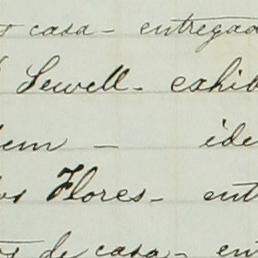 casa - entregad
Sewell - exhib
dem - ide
os Flores - ent
os de casa - en